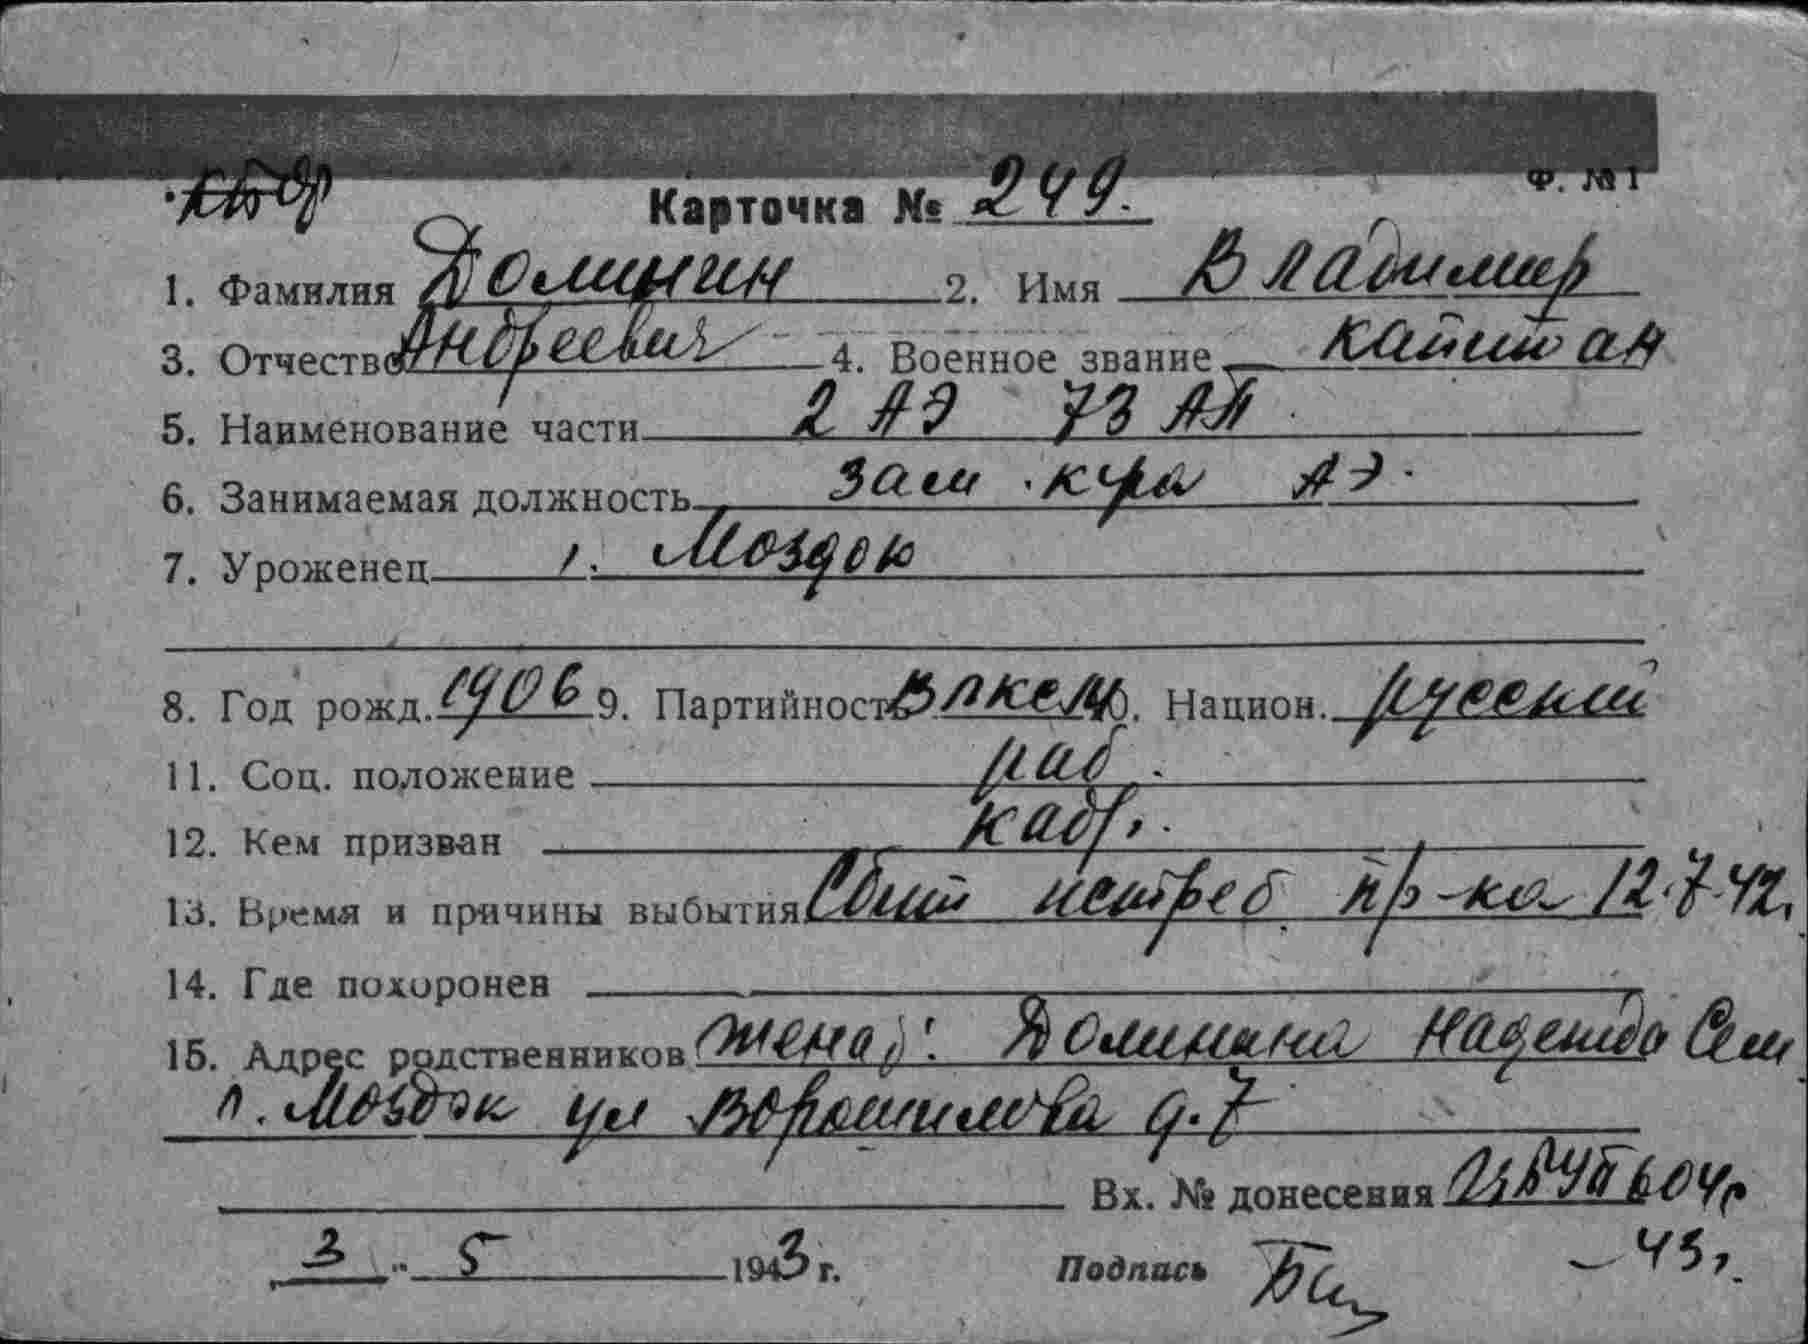 Ф. № 1
Карточка № 249.
1. Фамилия Долинин 2. Имя Владимир
3. Отчество Андреевич 4. Военное звание капитан
5. Наименование части 2 АЭ 73 АП
6. Занимаемая должность зам. к-ра АЭ.
7. Уроженец г. Моздок
8. Год рожд. 1906 9. Партийность ВЛКСМ 10. Национ. русский
11. Соц. положение раб.
12. Кем призван кадр.
13. Время и причины выбытия Сбит истреб пр-ка 12.7.42.
14. Где похоронен
15. Адрес родственников жена: Долинина Надежда Сем
г. Моздок ул Ворошилова д. 7
Вх. № донесения 604с
3 " 5 1943 г. Подпись -43 г.